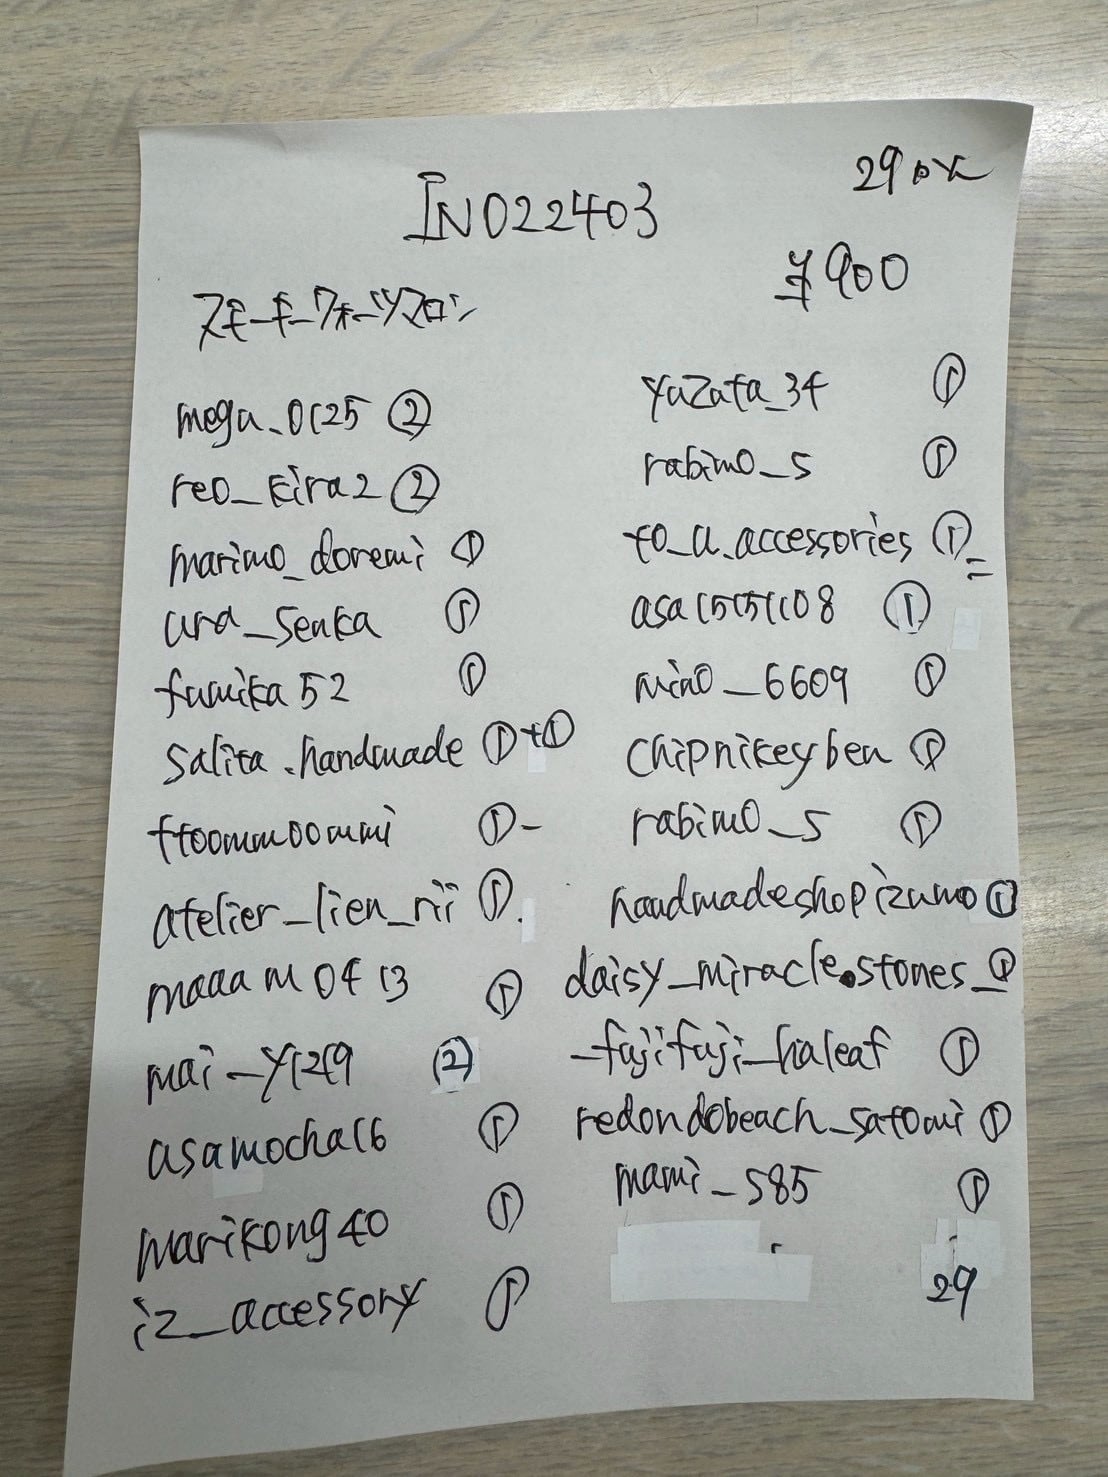 INO22403
¥900
スモーキークォーツマロン
mega_0125 ②
reo_kira2 ②
marimo_doremi ①
ura_senka ①
fumika52 ①
salita.handmade ①+①
ttoommoommi ①-
atelier_lien_rii ①.
maaam0413 ①
mai_y1219 ②
asamocha16 ①
marikong40 ①
iz_accessory ①
yazata_34 ①
rabimo_s ①
to_a.accessories ①=
asa15151108 ①
nino_6609 ①
chipnikeyben ①
rabimo_s ①
handmadeshopizumo ①
daisy_miracle.stones_ ①
_fujifuji_haleaf ①
redondobeach_satomi ①
mami_s85 ①
29